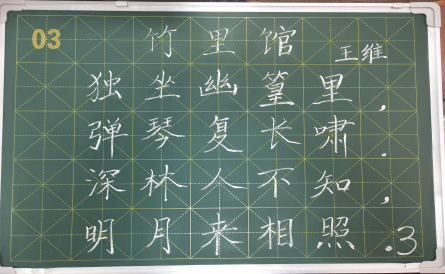 03
竹里馆
王维
独坐幽篁里，
弹琴复长啸。
深林人不知，
明月来相照.3